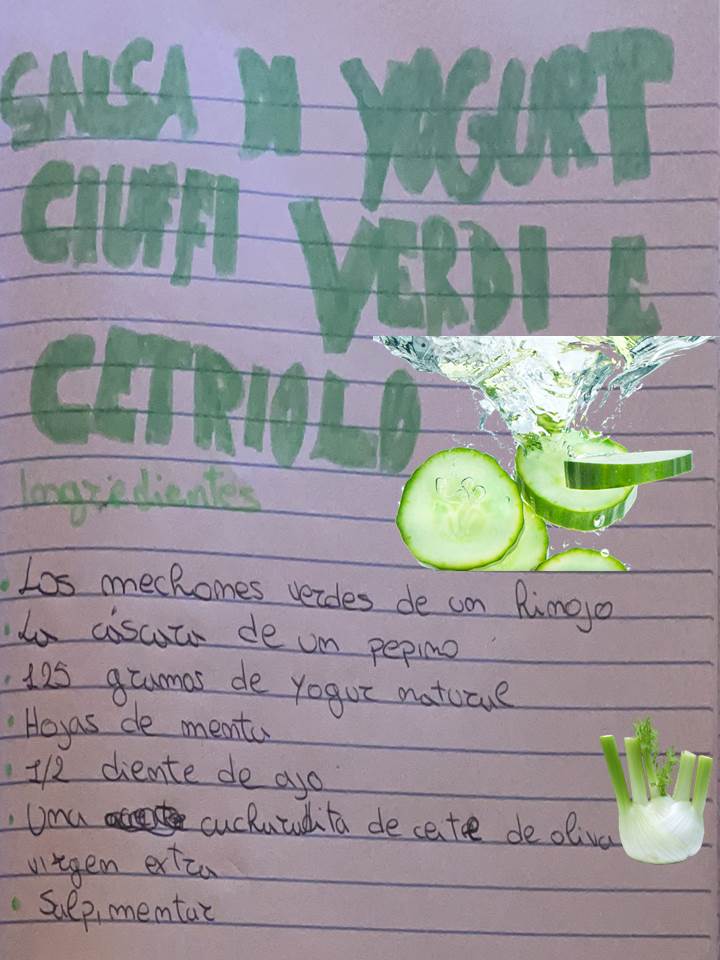 SALSA DI YOGURT
CIUFFI VERDI E
CETRIOLO
Ingredientes
• Los mechones verdes de un hinojo
• La cáscara de un pepino
• 125 gramos de yogur natural
• Hojas de menta
• 1/2 diente de ajo
• Una cucharadita de ceite de oliva
virgen extra
• Salpimentar